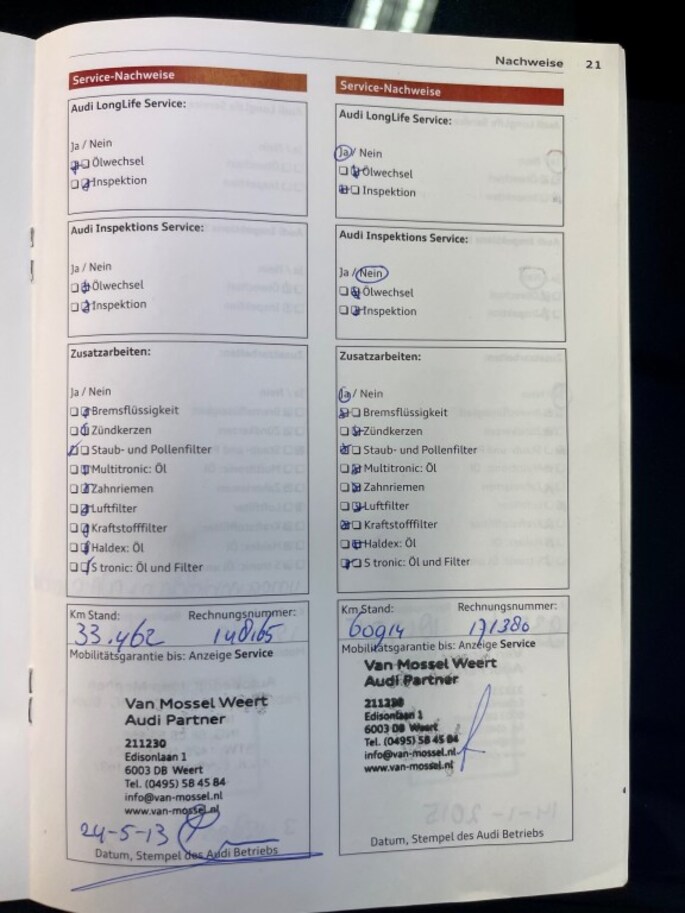 Nachweise 21
Service-Nachweise
Audi LongLife Service:
Ja / Nein
Ölwechsel
Inspektion
Audi Inspektions Service:
Ja / Nein
Ölwechsel
Inspektion
Zusatzarbeiten:
Ja / Nein
Bremsflüssigkeit
Zündkerzen
Staub- und Pollenfilter
Multitronic: Öl
Zahnriemen
Luftfilter
Kraftstofffilter
Haldex: Öl
S tronic: Öl und Filter
Km Stand: Rechnungsnummer:
33.462 148165
Mobilitätsgarantie bis: Anzeige Service
Van Mossel Weert
Audi Partner
211230
Edisonlaan 1
6003 DB Weert
Tel. (0495) 58 45 84
info@van-mossel.nl
www.van-mossel.nl
24-5-13
Datum, Stempel des Audi Betriebs
Service-Nachweise
Audi LongLife Service:
Ja / Nein
Ölwechsel
Inspektion
Audi Inspektions Service:
Ja / Nein
Ölwechsel
Inspektion
Zusatzarbeiten:
Ja / Nein
Bremsflüssigkeit
Zündkerzen
Staub- und Pollenfilter
Multitronic: Öl
Zahnriemen
Luftfilter
Kraftstofffilter
Haldex: Öl
S tronic: Öl und Filter
Km Stand: Rechnungsnummer:
60914 171380
Mobilitätsgarantie bis: Anzeige Service
Van Mossel Weert
Audi Partner
211230
Edisonlaan 1
6003 DB Weert
Tel. (0495) 58 45 84
info@van-mossel.nl
www.van-mossel.nl
Datum, Stempel des Audi Betriebs